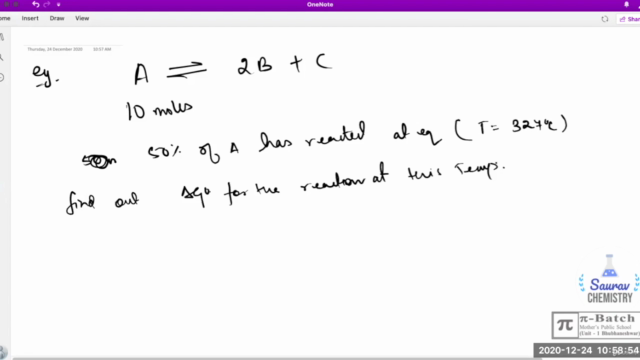 OneNote
Home Insert Draw View
Share
Thursday, 24 December 2020 10:57 AM
eg. A ⇌ 2B + C
10 moles
50% of A has reacted at eq (T = 327°C)
find out ΔG° for the reaction at this Temp.
Saurav
CHEMISTRY
π π-Batch
Mother's Public School
(Unit - 1 Bhubaneshwar)
2020-12-24 10:58:54